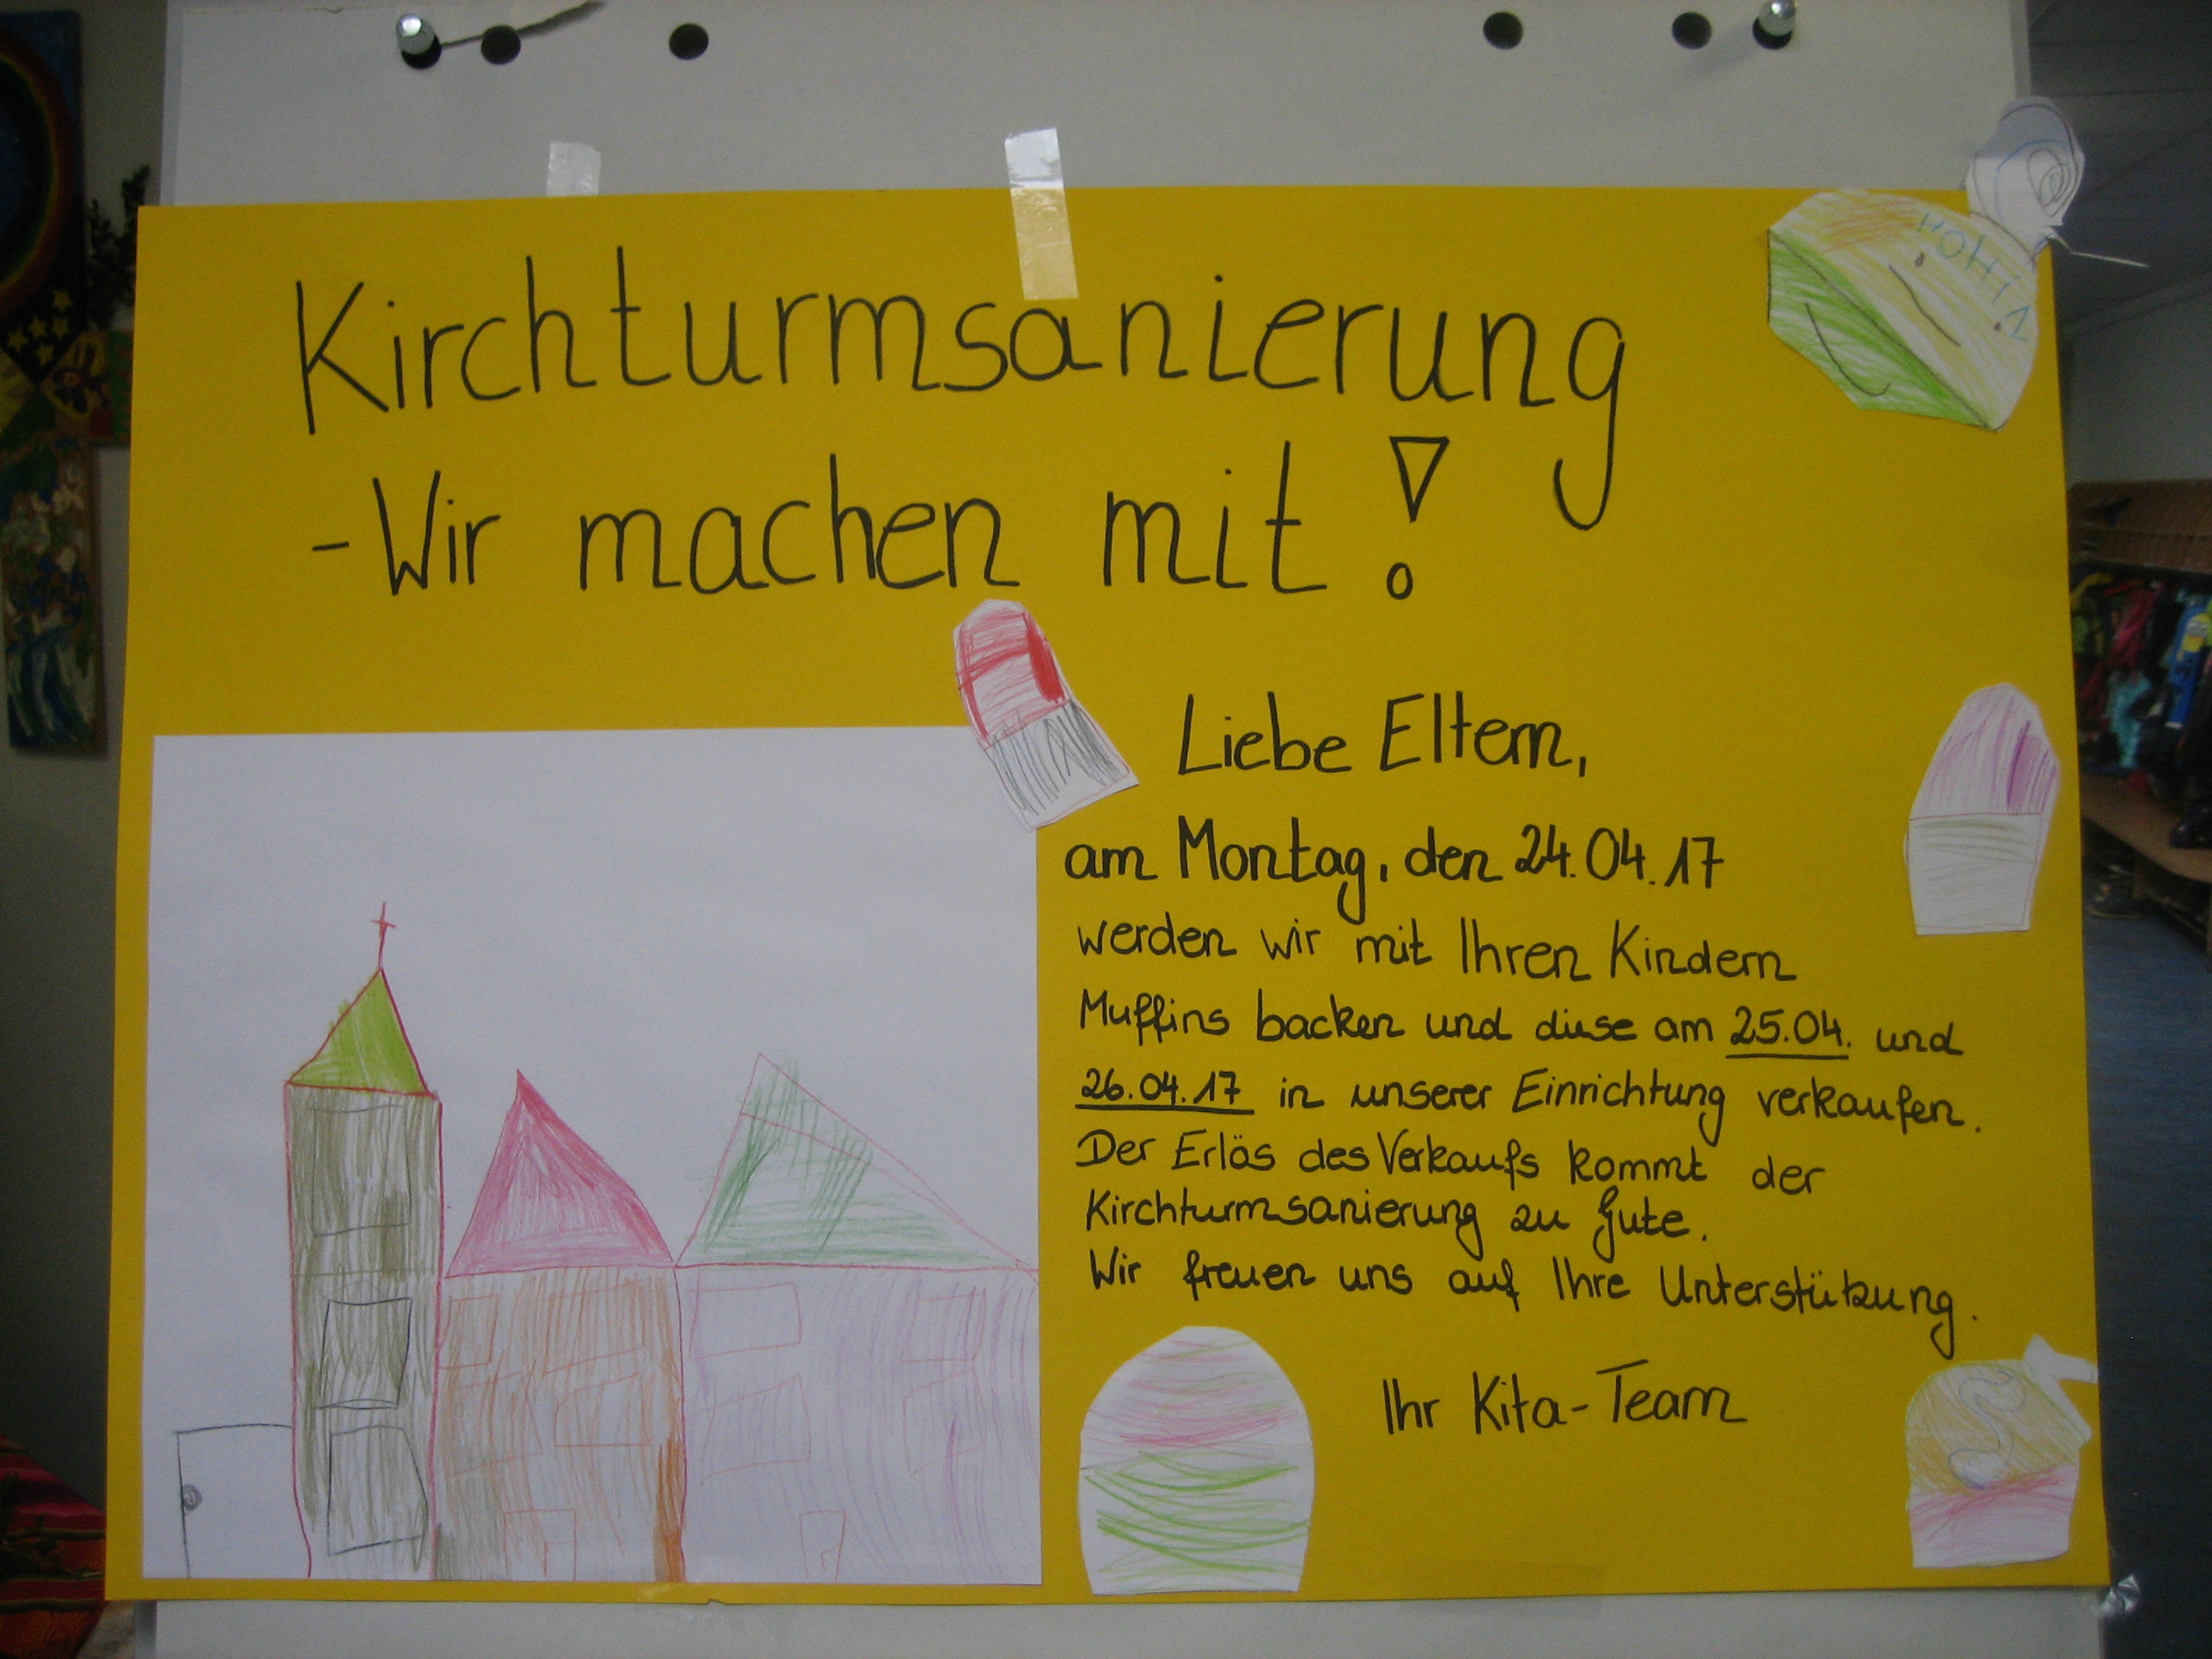 Kirchturmsanierung
- Wir machen mit!
Liebe Eltern,
am Montag, den 24.04.17
werden wir mit Ihren Kindern
Muffins backen und diese am 25.04. und
26.04.17 in unserer Einrichtung verkaufen.
Der Erlös des Verkaufs kommt der
Kirchturmsanierung zu Gute.
Wir freuen uns auf Ihre Unterstützung.
Ihr Kita-Team